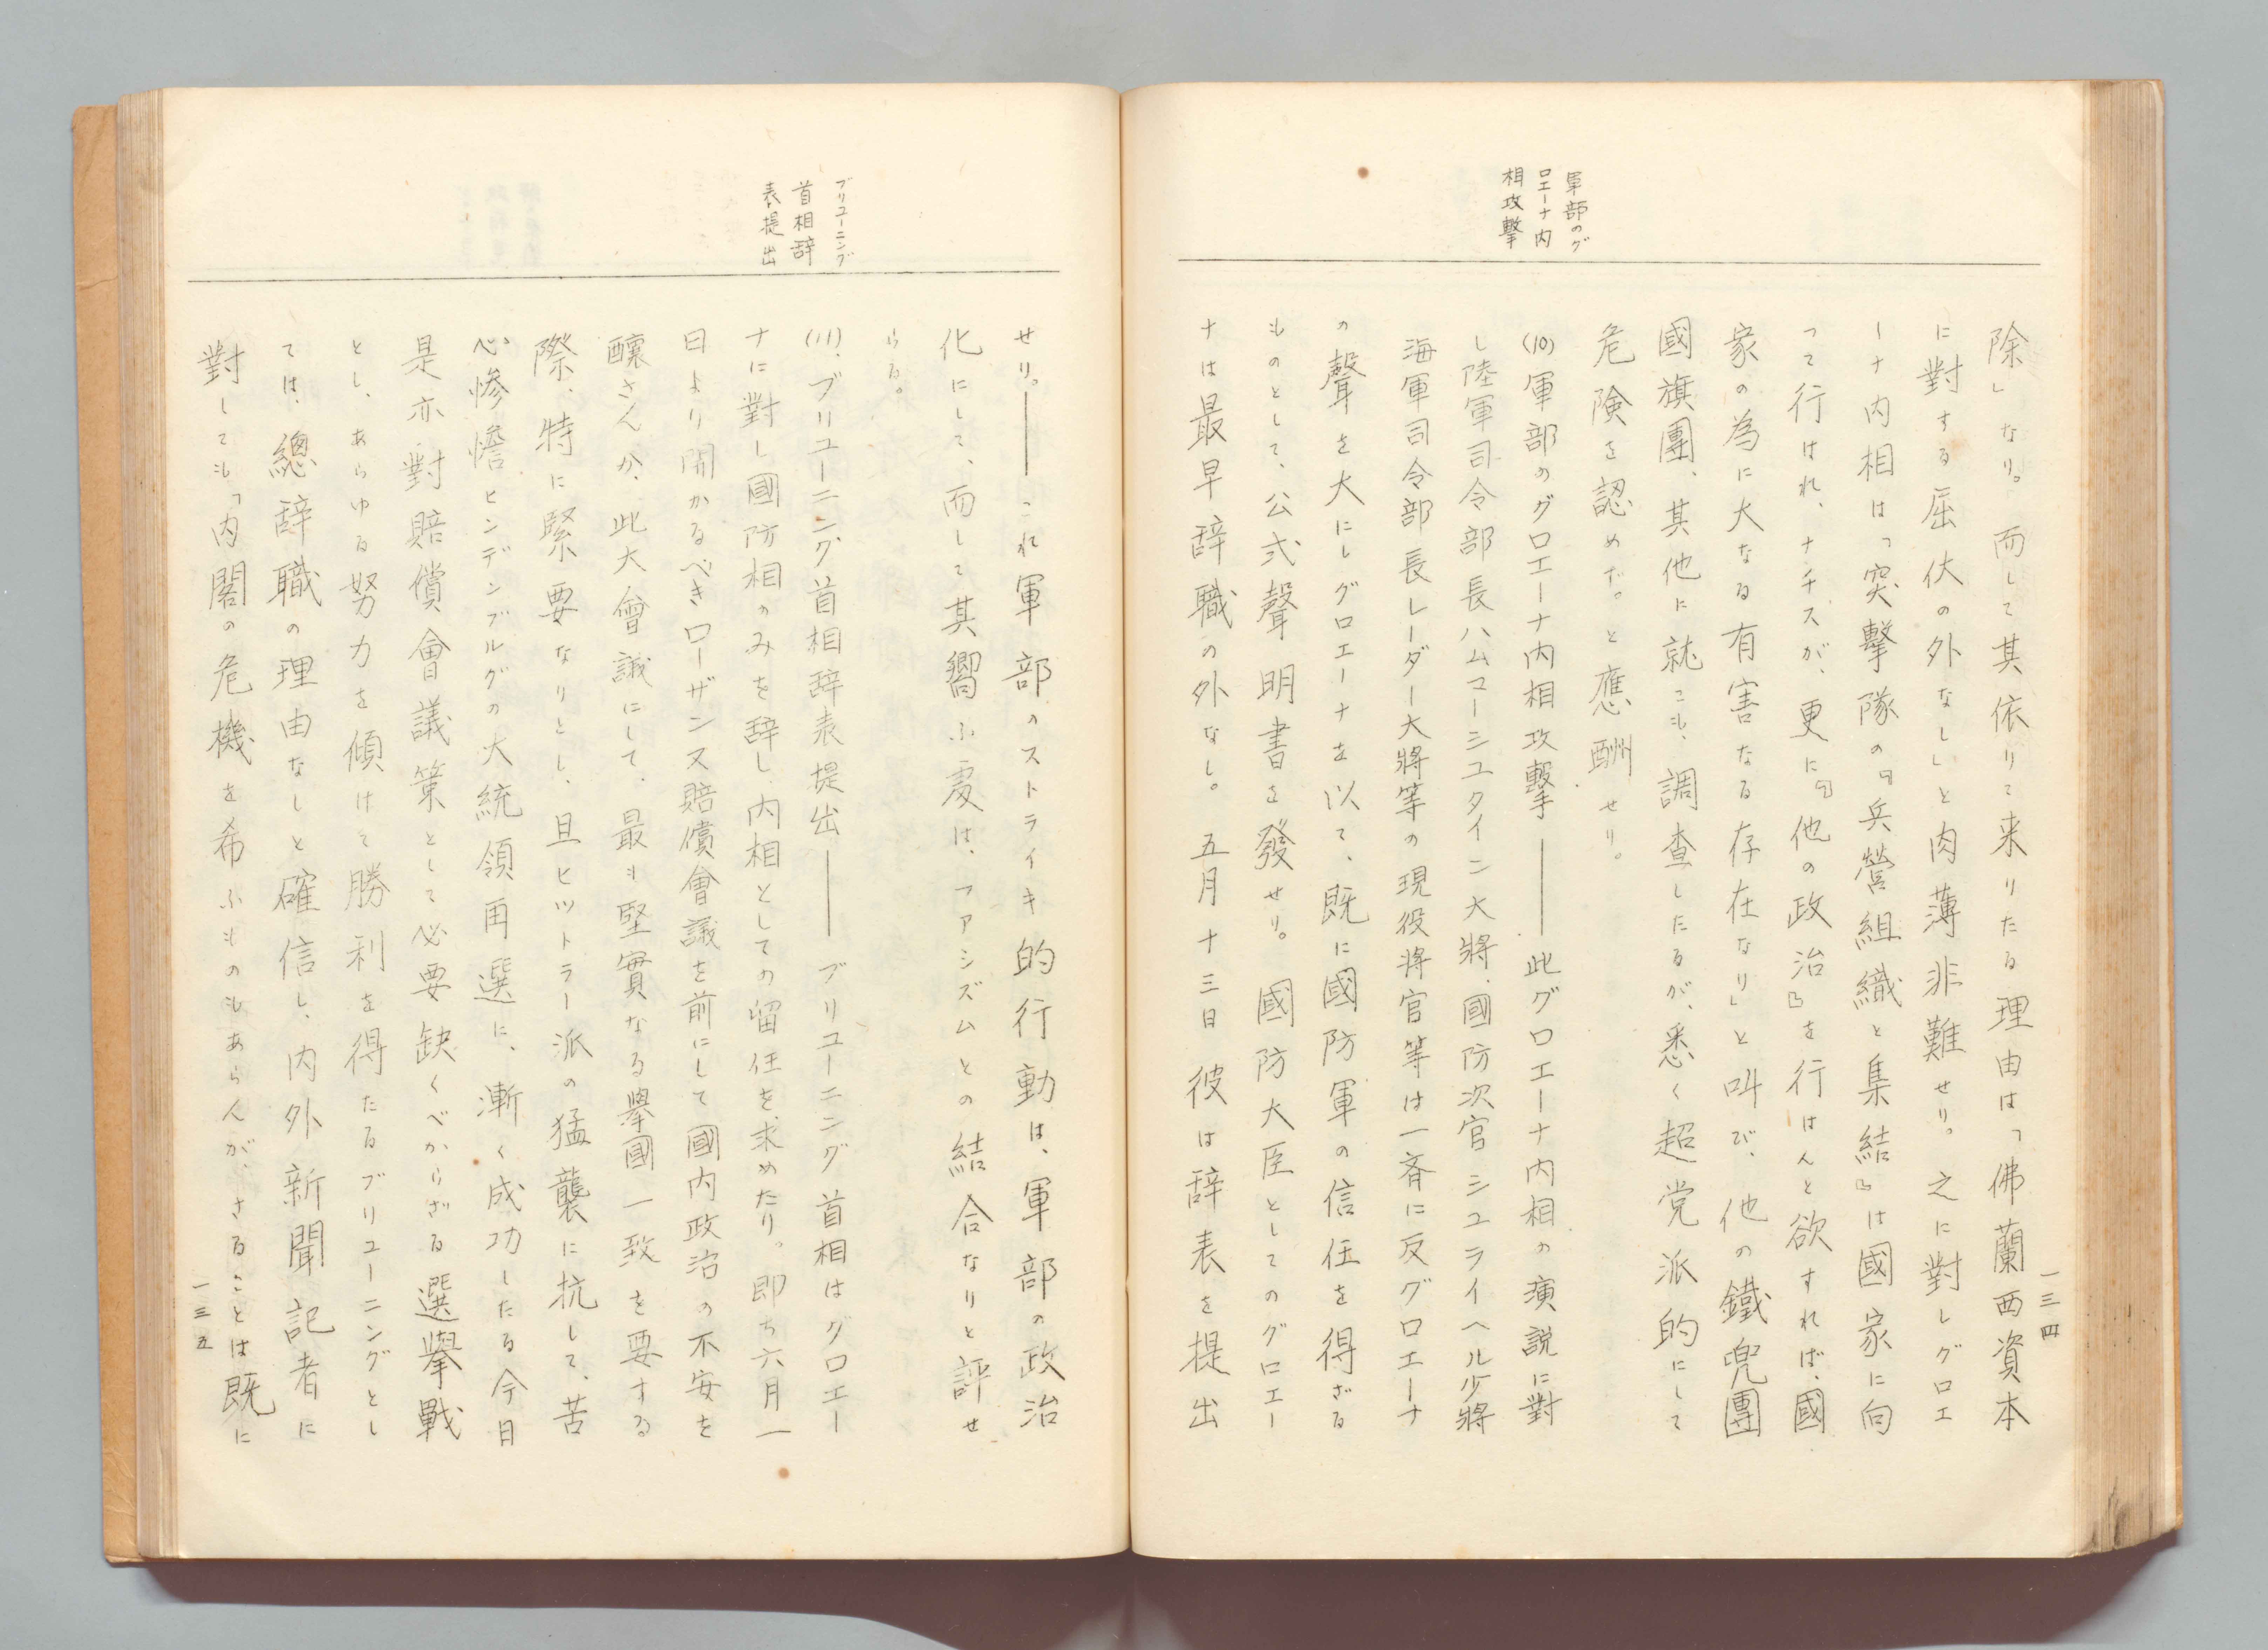 一三四
軍部のグ
ロエーナ内
相攻撃
除」なり。而して其依りて来りたる理由は「佛蘭西資本
に對する屈伏の外なし」と肉薄非難せり。之に對しグロエ
ーナ内相は「突擊隊の『兵營組織と集結』は國家に向
つて行はれ、ナチスが、更に『他の政治』を行はんと欲すれば、國
家の為に大なる有害なる存在なり」と叫び、他の鐵兜團
國旗團、其他に就ても、調査したるが、悉く超党派的にして
危険を認めず。と應酬せり。
(10)軍部のグロエーナ内相攻擊――此グロエーナ内相の演説に對
し陸軍司令部長ハムマーシユタイン大將、國防次官シユライヘル少將
海軍司令部長レーダー大將等の現役將官等は一斉に反グロエーナ
の聲を大にしグロエーナを以て、既に國防軍の信任を得ざる
ものとして、公式聲明書を發せり。國防大臣としてのグロエー
ナは最早辞職の外なし。五月十三日彼は辞表を提出
ブリユーニング
首相辞
表提出
せり。――これ軍部のストライキ的行動は、軍部の政治
化にして、而して其嚮ふ処は、フアシズムとの結合なりと評せ
らる。
(11)、ブリユーニング首相辞表提出――ブリユーニング首相はグロエー
ナに對し國防相のみを辞し内相としての留任を求めたり。即ち六月一
日より開かるべきローザンヌ賠償會議を前にして國内政治の不安を
醸さんか、此大會議にして、最も堅實なる擧國一致を要する
際、特に緊要なりとし、且ヒツトラー派の猛襲に抗して、苦
心惨憺ヒンデンブルグの大統領再選に、漸く成功したる今日
是亦對賠償會議策として必要缺くべからざる選擧戰
とし、あらゆる努力を傾けて勝利を得たるブリユーニングとし
ては、總辞職の理由なしと確信し、内外新聞記者に
對しても「内閣の危機を希ふものもあらんが、さることは既に
一三五